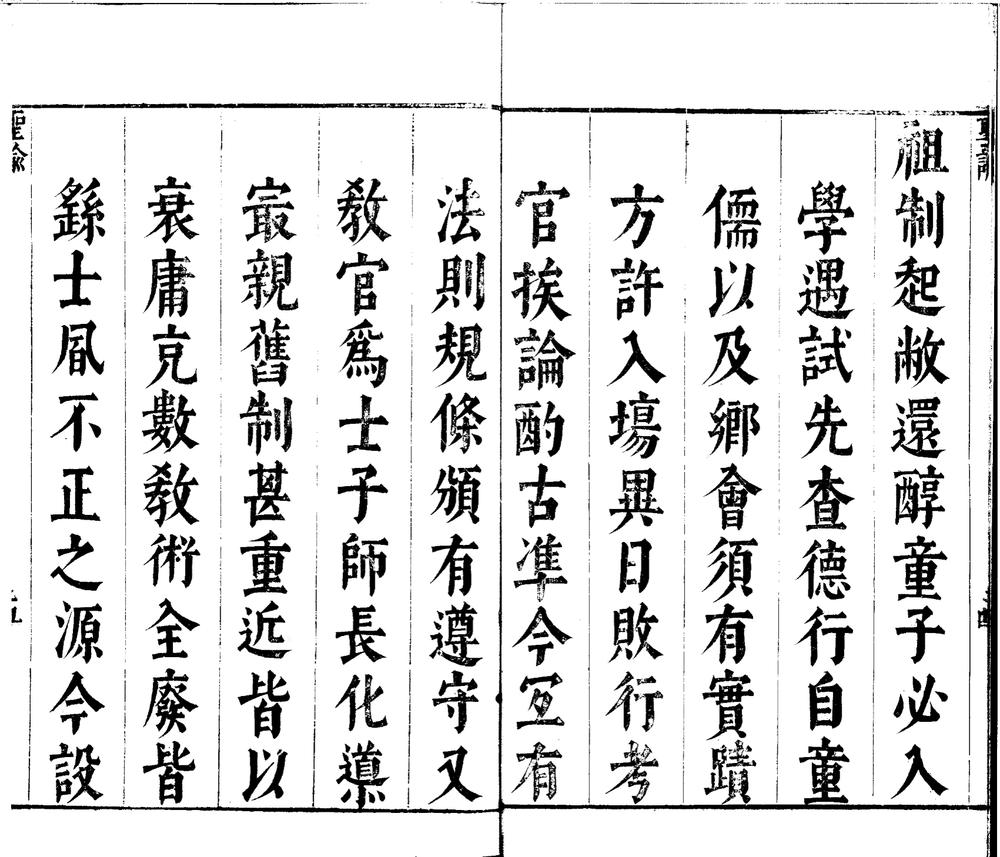 祖制起敝還醇童子必入
學遇試先查德行自童
儒以及鄉會須有實蹟
方許入塲異日敗行考
官挨論酌古凖今宜有
法則規條頒有遵守又
教官爲士子師長化導
最親舊制甚重近皆以
衰庸充數教術全廢皆
繇士風不正之源今設
聖諭